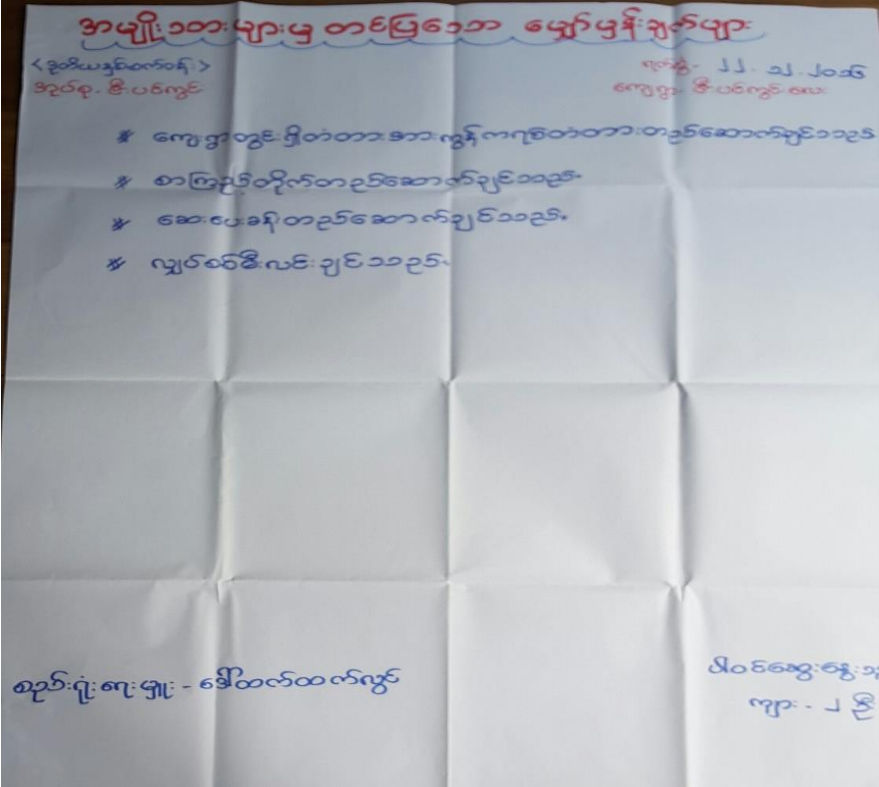 အမျိုးသားများမှ တင်ပြသော မျှော်မှန်းချက်များ
<ဒုတိယနှစ်ပတ်ဝန်း> ရက်စွဲ - ၂၂.၁၂.၂၀၁၆
အုပ်စု - ဇီးပင်ကွင်း ကျေးရွာ - ဇီးပင်ကွင်းလေး
* ကျေးရွာတွင်းရှိတံတားအားကွန်ကရစ်တံတားတည်ဆောက်ချင်သည်
* စာကြည့်တိုက်တည်ဆောက်ချင်သည်။
* ဆေးပေးခန်းတည်ဆောက်ချင်သည်။
* လျှပ်စစ်မီးလင်းချင်သည်။
စည်းရုံးရေးမှူး - ဒေါ်ထက်ထက်လွင် ပါဝင်ဆွေးနွေးသ
ကျား - ၂ ဦ